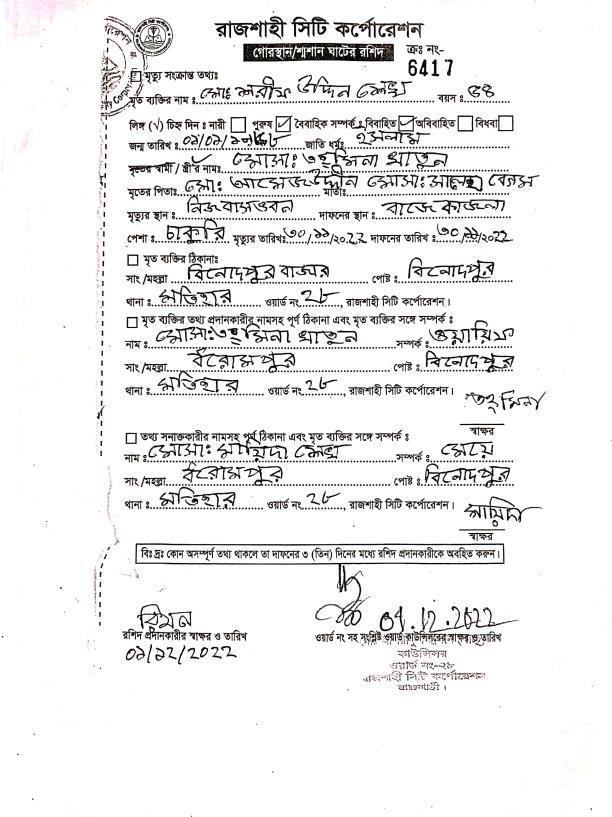 রাজশাহী সিটি কর্পোরেশন
গোরস্থান/শ্মশান ঘাটের রশিদ ক্রঃ নং-
6417
মৃত্যু সংক্রান্ত তথ্যঃ
মৃত ব্যক্তির নাম : মোঃ শরীফ উদ্দিন শেখ বয়স : ৫৪
লিঙ্গ (√) চিহ্ন দিন : নারী পুরুষ ✓ বৈবাহিক সম্পর্ক : বিবাহিত ✓ অবিবাহিত বিধবা
জন্ম তারিখ : জাতি ধর্মঃ ইসলাম
মৃতের স্বামী / স্ত্রীর নাম: মোসা: তহমিনা খাতুন
মৃতের পিতাঃ মোঃ মাতাঃ মোসা: বেগম
মৃত্যুর স্থান : নিজ বাসভবন দাফনের স্থান : বাজে কাজলা
পেশা : চাকুরি মৃত্যুর তারিখঃ ৩০/১১/২০২২ দাফনের তারিখ : ৩০/১১/২০২২
মৃত ব্যক্তির ঠিকানাঃ
সাং/মহল্লা বিনোদপুর বাজার পোষ্ট : বিনোদপুর
থানা : মতিহার ওয়ার্ড নং ২৮, রাজশাহী সিটি কর্পোরেশন।
মৃত ব্যক্তির তথ্য প্রদানকারীর নামসহ পূর্ণ ঠিকানা এবং মৃত ব্যক্তির সঙ্গে সম্পর্ক :
নাম : মোসা: তহমিনা খাতুন সম্পর্ক : ওয়ায়িফ
সাং/মহল্লা পোষ্ট : বিনোদপুর
থানা : মতিহার ওয়ার্ড নং ২৮ রাজশাহী সিটি কর্পোরেশন।
তহমিনা
স্বাক্ষর
তথ্য সনাক্তকারীর নামসহ পূর্ণ ঠিকানা এবং মৃত ব্যক্তির সঙ্গে সম্পর্ক :
নাম : মোসা: শেখ সম্পর্ক : মেয়ে
সাং/মহল্লা পোষ্ট : বিনোদপুর
থানা : মতিহার ওয়ার্ড নং ২৮, রাজশাহী সিটি কর্পোরেশন।
স্বাক্ষর
বিঃ দ্রঃ কোন অসম্পূর্ণ তথ্য থাকলে তা দাফনের ৩ (তিন) দিনের মধ্যে রশিদ প্রদানকারীকে অবহিত করুন।
01.12.2022
রশিদ প্রদানকারীর স্বাক্ষর ও তারিখ ওয়ার্ড নং সহ সংশ্লিষ্ট ওয়ার্ড কাউন্সিলরের স্বাক্ষর ও তারিখ
০১/১২/২০২২
কাউন্সিলর
ওয়ার্ড নং-২৮
রাজশাহী সিটি কর্পোরেশন
রাজশাহী।